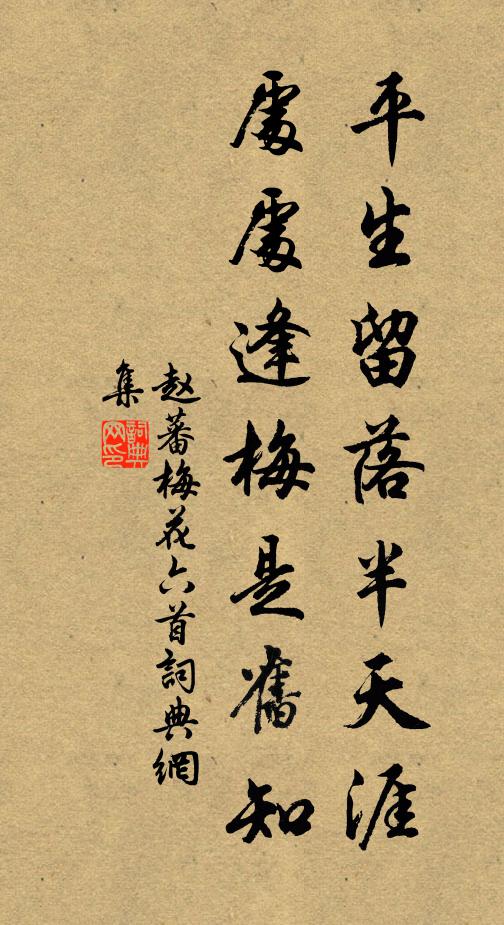 平生留落半天涯
處處逢梅是舊知
赵蕃梅花六首詞典網
集
詞典网印